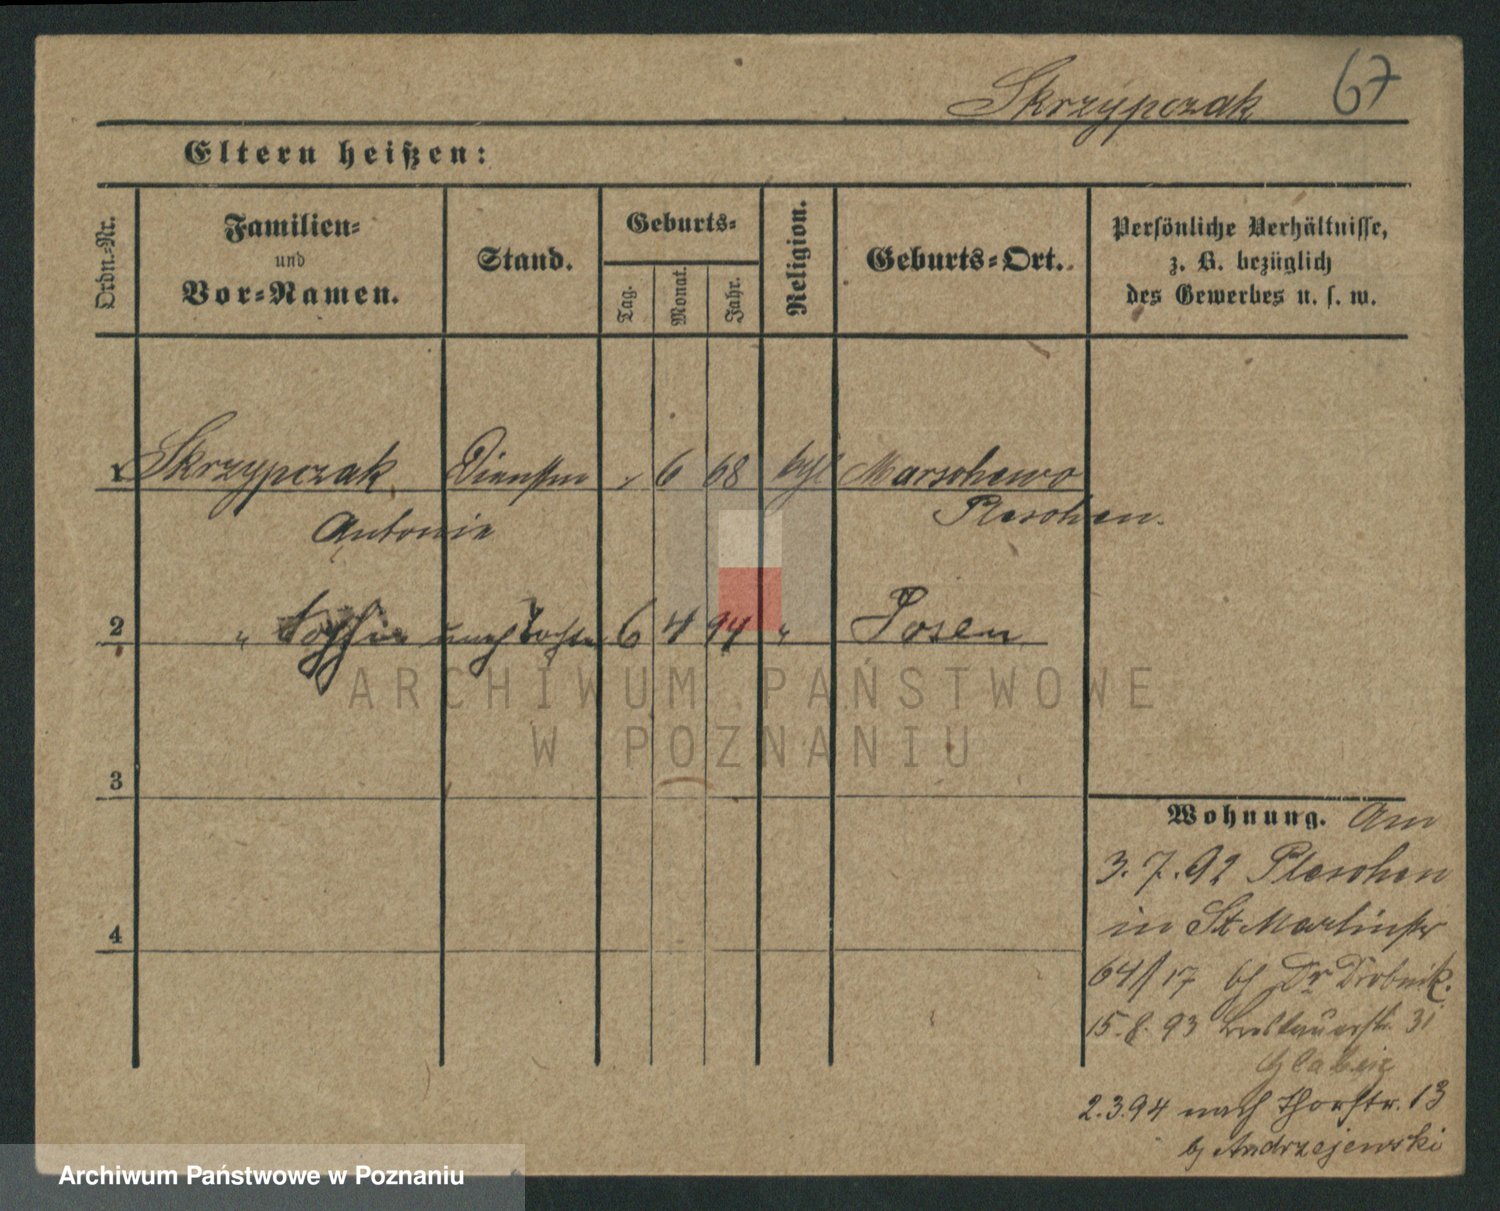 Skrzypczak 67
Eltern heißen:
Ordn.-Nr.
Familien-
und
Vor-Namen.
Stand.
Geburts-
Tag.
Monat.
Jahr.
Religion.
Geburts-Ort.
Persönliche Verhältnisse,
z. B. bezüglich
des Gewerbes u. s. w.
1 Skrzypczak 6 68 Marschewo
Antonie Pleschen.
2 " Sophie unehl Tochter 6 4 94 " Posen
ARCHIWUM PAŃSTWOWE
W POZNANIU
3
4
Wohnung. Am
3.7.92 Pleschen
in St Martinstr
64/17 bei Dr Drobnik.
15.8.93 Breslauerstr. 31
2.3.94 nach Thorstr. 13
b/ Andrzejewski
Archiwum Państwowe w Poznaniu